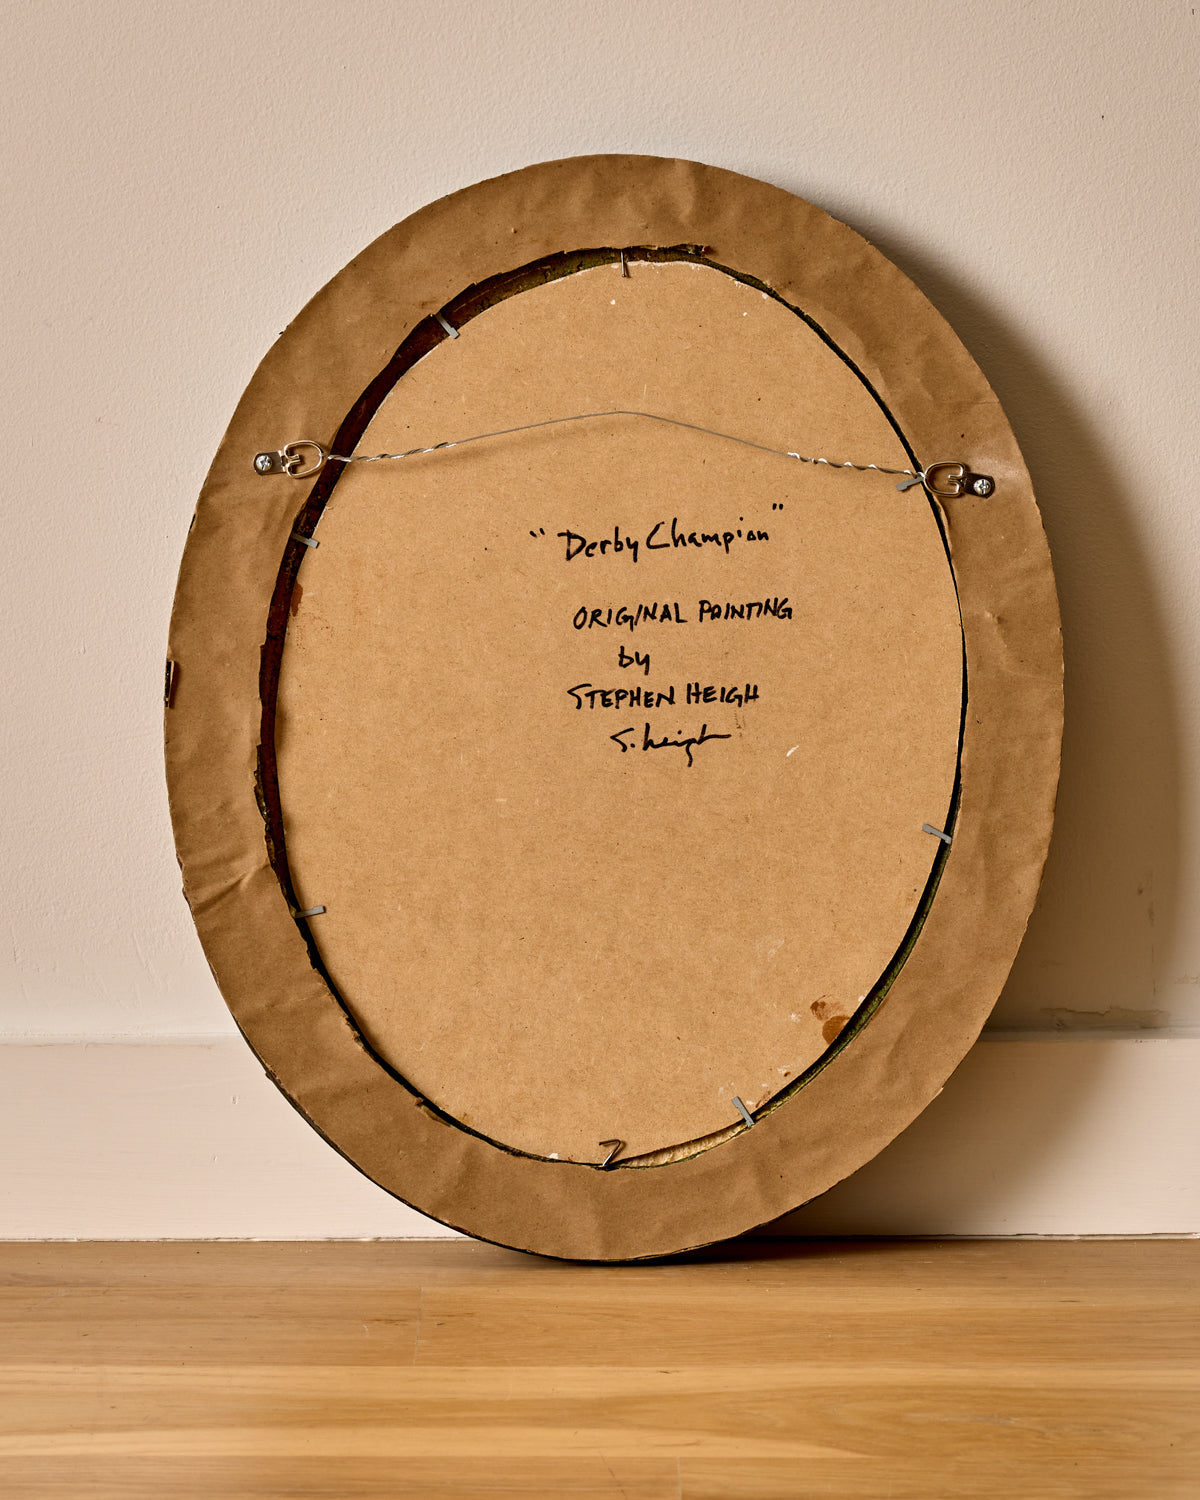 "Derby Champion"
ORIGINAL PAINTING
by
STEPHEN HEIGH
S. Heigh